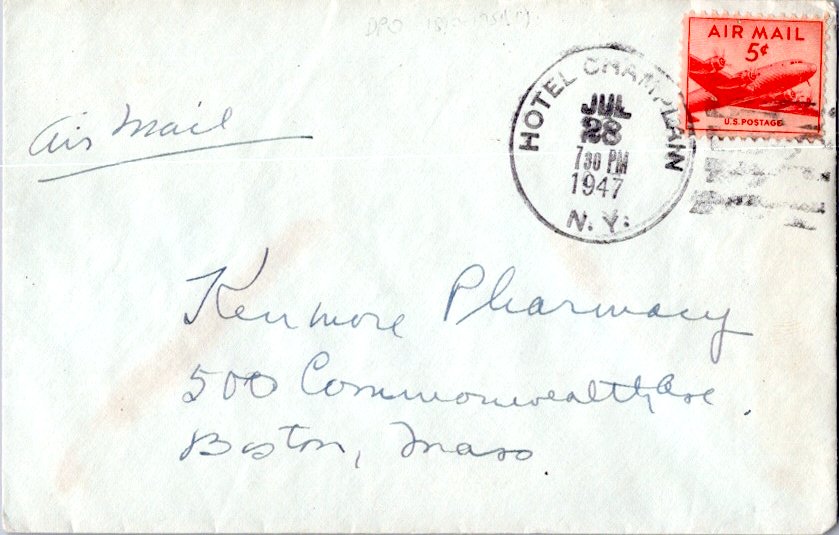 DPO
AIR MAIL
5¢
U.S. POSTAGE
HOTEL CHAMPLAIN
JUL
28
730 PM
1947
N.Y.
Air Mail
Kenmore Pharmacy
500 Commonwealth Ave.
Boston, Mass.